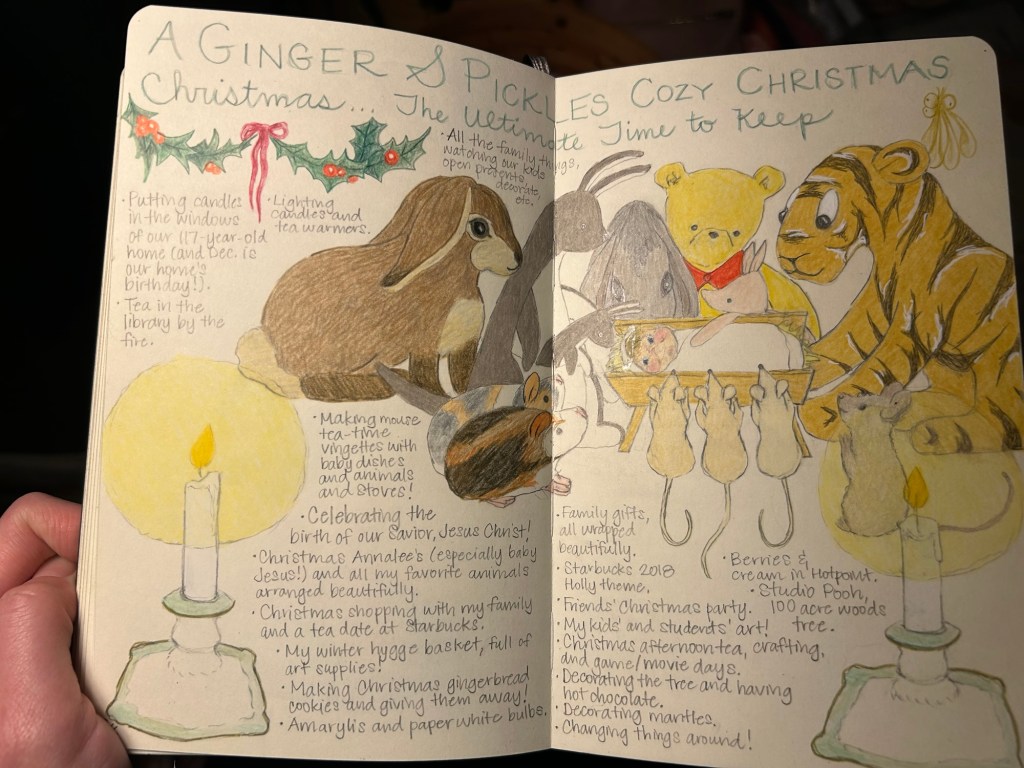 A GINGER & PICKLES COZY CHRISTMAS
Christmas... The Ultimate Time to Keep
• All the family things,
watching our kids
open presents,
decorate,
etc.
• Putting candles
in the windows
of our 117-year-old
home (and Dec. is
our home's
birthday!).
• Tea in the
library by the
fire.
• Lighting
candles and
tea warmers.
• Making mouse
tea-time
vingettes with
baby dishes
and animals
and stoves!
• Celebrating the
birth of our Savior, Jesus Christ!
• Christmas Annalee's (especially baby
Jesus!) and all my favorite animals
arranged beautifully.
• Christmas shopping with my family
and a tea date at Starbucks.
• My winter hygge basket, full of
art supplies!
• Making Christmas gingerbread
cookies and giving them away!
• Amarylis and paper white bulbs.
• Family gifts,
all wrapped
beautifully.
• Starbucks 2018
Holly theme.
• Friends' Christmas party.
• My kids' and students' art!
• Christmas afternoon tea, crafting,
and game/movie days.
• Decorating the tree and having
hot chocolate.
• Decorating mantles.
• Changing things around!
• Berries &
cream in Hotpoint.
• Studio Pooh,
100 acre woods
tree.